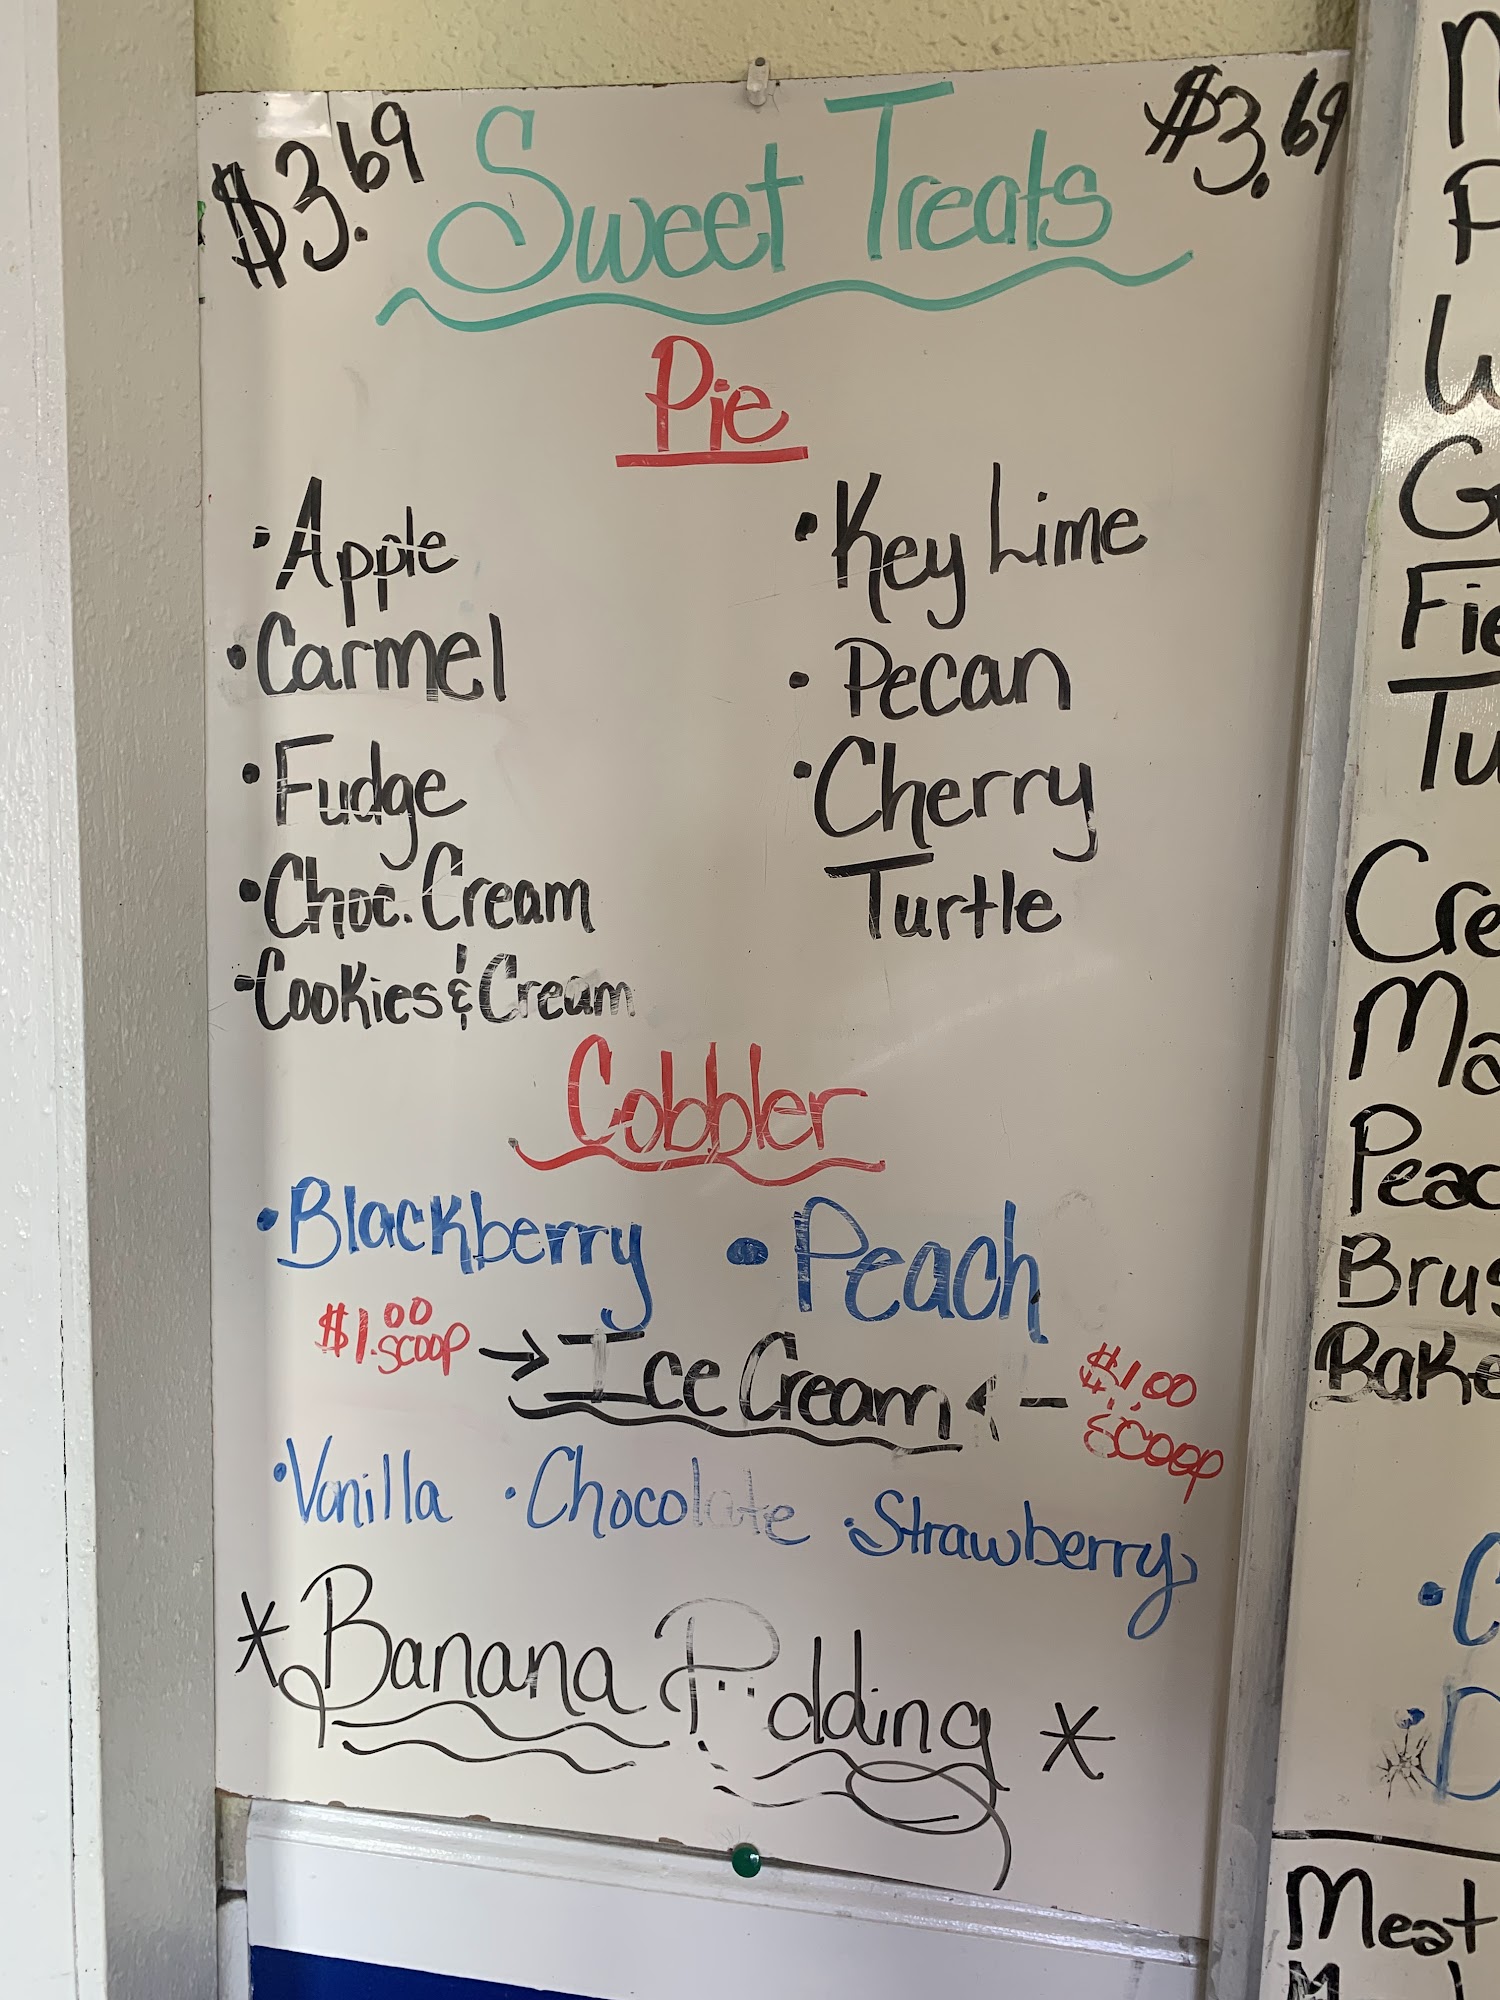 $3.69 Sweet Treats $3.69
Pie
• Apple
• Carmel
• Fudge
• Choc. Cream
- Cookies & Cream
• Key Lime
• Pecan
• Cherry
Turtle
Cobbler
• Blackberry • Peach
$1.00 SCOOP → Ice Cream ← $1.00 SCOOP
• Vanilla • Chocolate • Strawberry
* Banana Pudding *
Meat